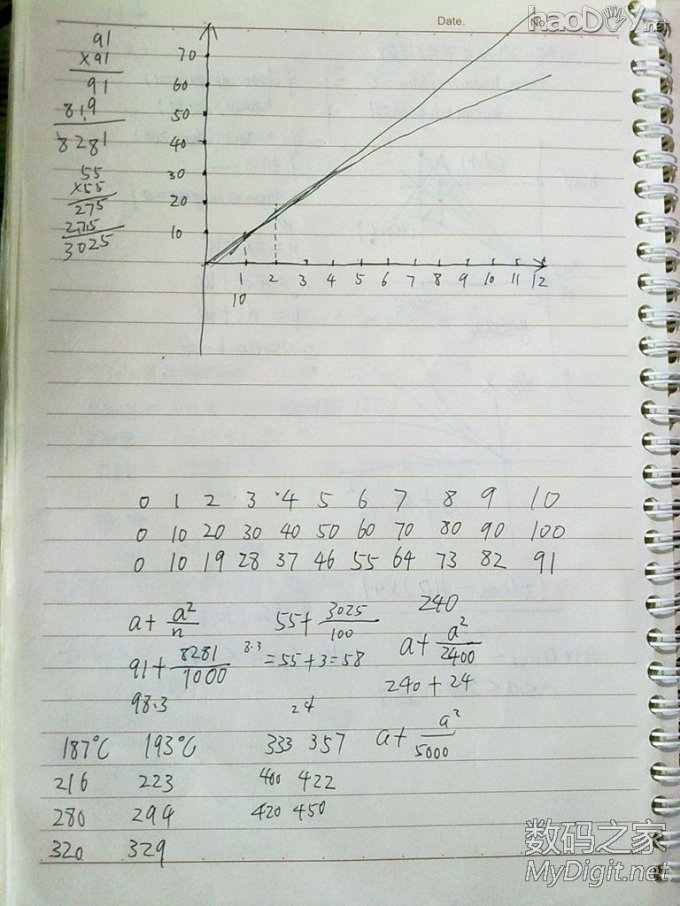 Date.
No.
haoDIY.net
91
x91
91
819
8281
55
x55
275
275
3025
70
60
50
40
30
20
10
1 2 3 4 5 6 7 8 9 10 11 12
10
0 1 2 3 4 5 6 7 8 9 10
0 10 20 30 40 50 60 70 80 90 100
0 10 19 28 37 46 55 64 73 82 91
a + a²/n
55 + 3025/100
240
91 + 8281/1000
8.3
= 55 + 3 = 58
a + a²/2400
98.3
24
240 + 24
a + a²/5000
187°C 193°C 333 357
216 223 400 422
280 294 420 450
320 329
数码之家
MyDigit.net